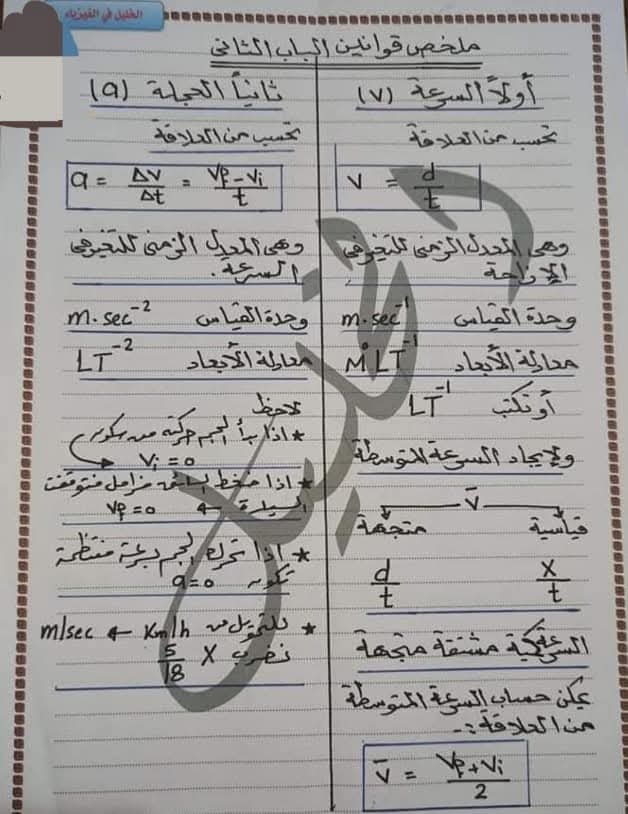 الخليل في الفيزياء
ملخص قوانين الباب الثانى
أولاً السرعة (v)
تحسب من العلاقة
v = d/t
وهى المعدل الزمنى للتغير فى
الإزاحة
وحدة القياس m.sec⁻¹
معادلة الأبعاد M⁰LT⁻¹
أو تكتب LT⁻¹
ولإيجاد السرعة المتوسطة
v̄
قياسية متجهة
x/t d/t
السرعة كمية مشتقة متجهة
يمكن حساب السرعة المتوسطة
من العلاقة :-
v̄ = (Vf + Vi)/2
ثانياً العجلة (a)
تحسب من العلاقة
a = Δv/Δt = (Vf - Vi)/t
وهى المعدل الزمنى للتغير فى
السرعة .
وحدة القياس m.sec⁻²
معادلة الأبعاد LT⁻²
لاحظ
* اذا بدأ الجسم حركته من سكون
Vi = 0
* اذا ضغط السائق فرامل فتوقفت
السيارة ← Vf = 0
* اذا تحرك الجسم بسرعة منتظمة
تكون a = 0
* للتحويل من Km/h ← m/sec
نضرب × 5/18
الخليل